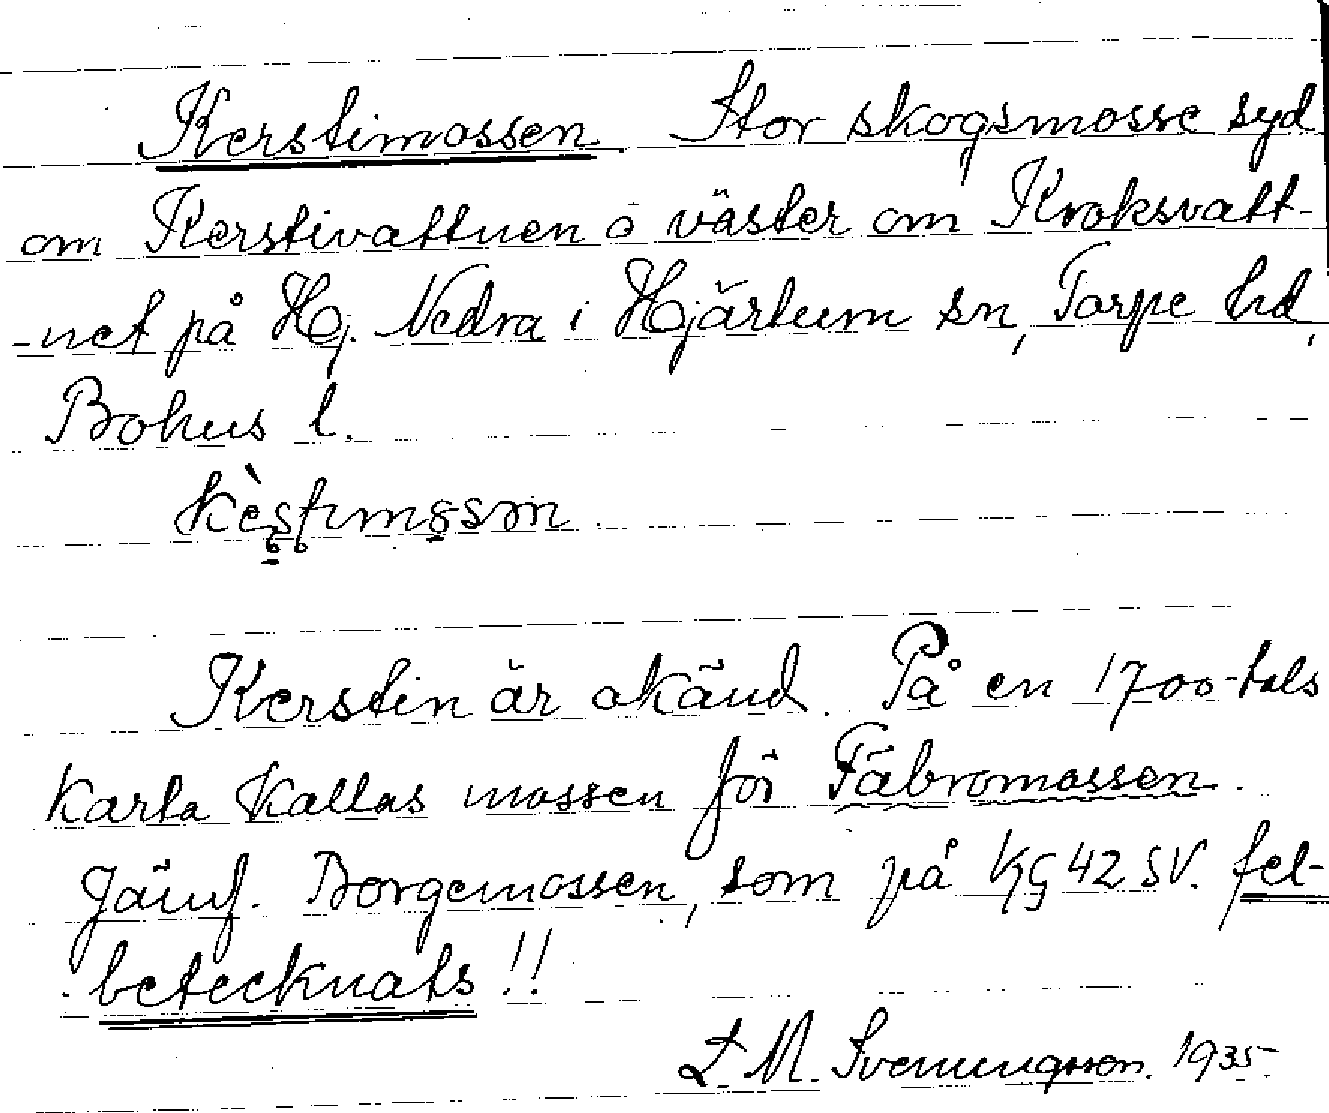 Kerstimossen. Stor skogsmosse syd
om Kerstivattnen o väster om Kroksvatt-
-net på Hg. Nedra i Hjärtum sn, Torpe hd,
Bohus l.
Kerstin är okänd. På en 1700-tals
karta kallas mossen för Fäbromossen.
Jämf. Borgemossen, som på KG 42 SV. fel-
betecknats!!
L. M. Svenungsson. 1935